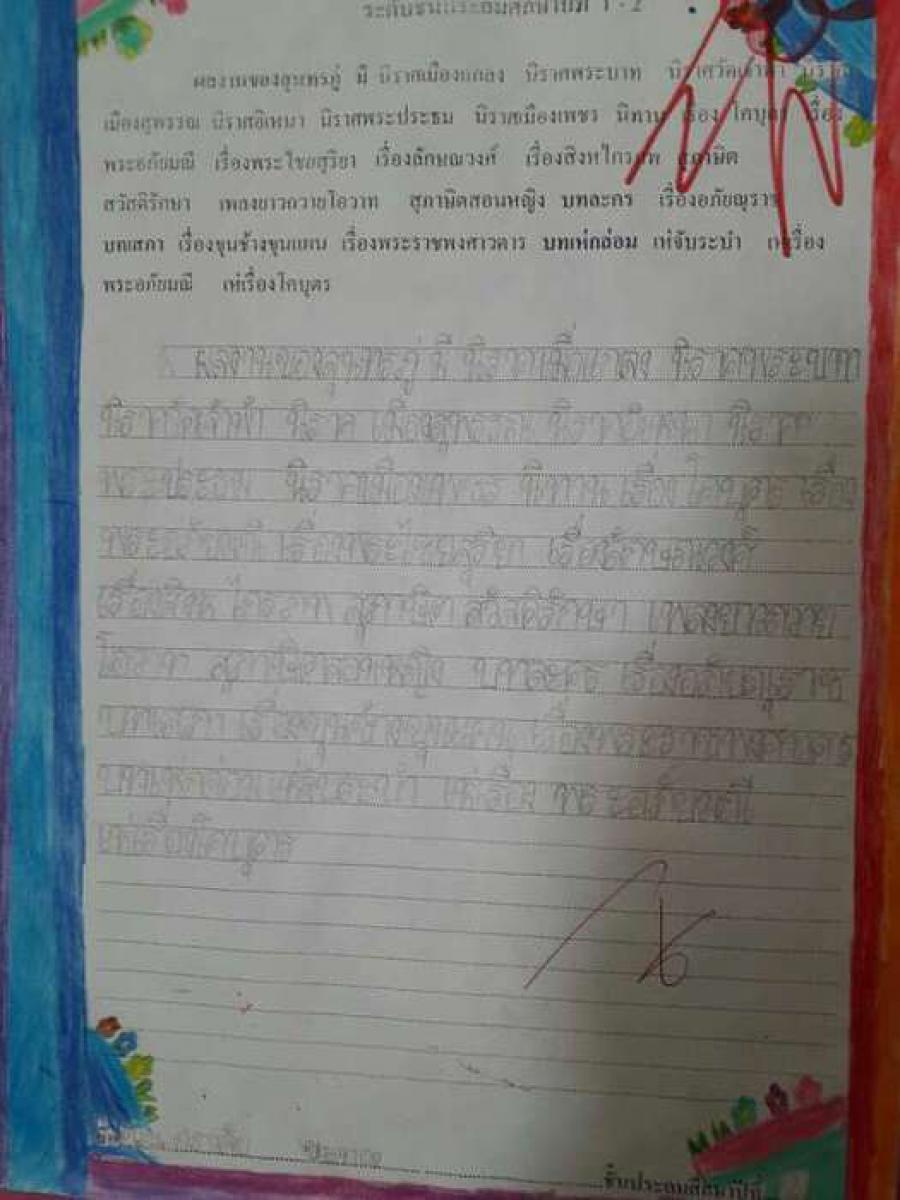 ระดับชั้นประถมศึกษาปีที่ 1 - 2
ผลงานของสุนทรภู่ มี นิราศเมืองแกลง นิราศพระบาท นิราศวัดเจ้าฟ้า นิราศ
เมืองสุพรรณ นิราศอิเหนา นิราศพระประธม นิราชเมืองเพชร นิทาน เรื่อง โคบุตร เรื่อง
พระอภัยมณี เรื่องพระไชยสุริยา เรื่องลักษณวงศ์ เรื่องสิงหไกรภพ สุภาษิต
สวัสดิรักษา เพลงยาวถวายโอวาท สุภาษิตสอนหญิง บทละคร เรื่องอภัยณุราช
บทเสภา เรื่องขุนช้างขุนแผน เรื่องพระราชพงศาวดาร บทเห่กล่อม เห่จับระบำ เห่เรื่อง
พระอภัยมณี เห่เรื่องโคบุตร
ผลงานของสุนทรภู่ มี นิราศเมืองแกลง นิราศพระบาท
นิราศวัดเจ้าฟ้า นิราศ เมืองสุพรรณ นิราศอิเหนา นิราศ
พระประธม นิราศเมืองเพชร นิทาน เรื่อง โคบุตร เรื่อง
พระอภัยมณี เรื่องพระไชยสุริยา เรื่องลักษณวงศ์
เรื่องสิงหไกรภพ สุภาษิต สวัสดิรักษา เพลงยาวถวาย
โอวาท สุภาษิตสอนหญิง บทละคร เรื่องอภัยณุราช
บทเสภา เรื่องขุนช้างขุนแผน เรื่องพระราชพงศาวดาร
บทเห่กล่อม เห่จับระบำ เห่เรื่อง พระอภัยมณี
เห่เรื่องโคบุตร
ชั้นประถมศึกษาปีที่